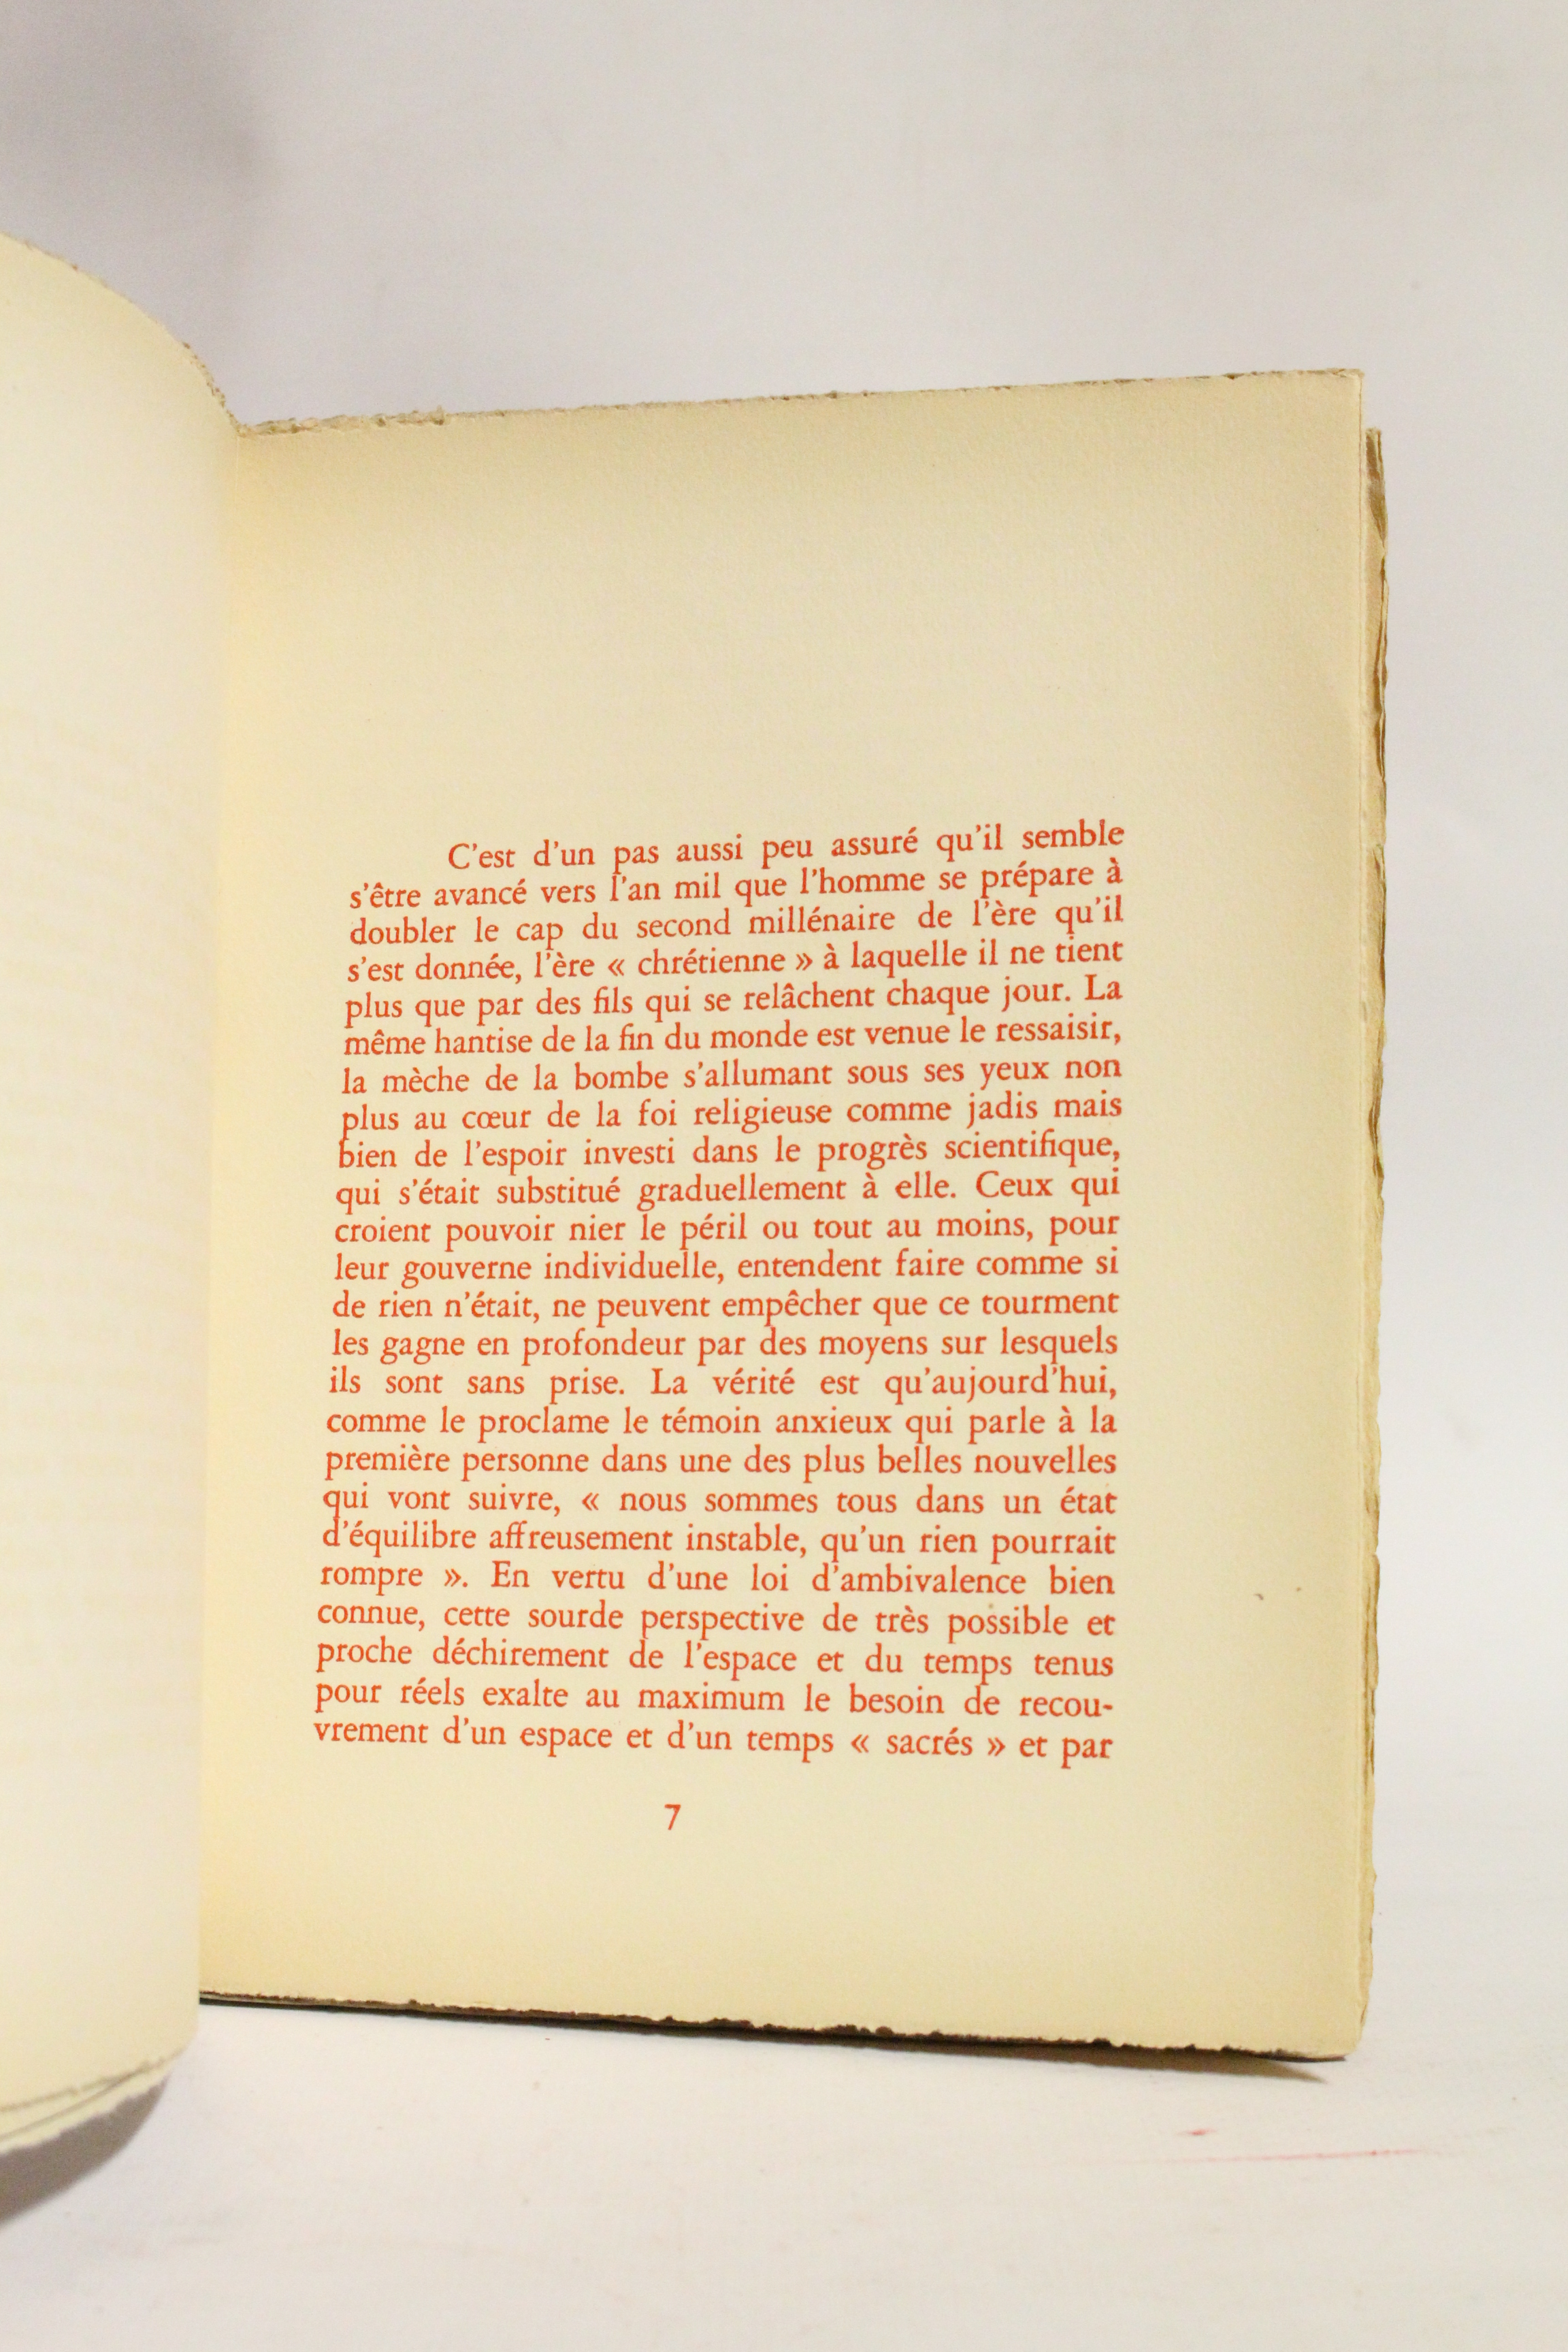 C'est d'un pas aussi peu assuré qu'il semble
s'être avancé vers l'an mil que l'homme se prépare à
doubler le cap du second millénaire de l'ère qu'il
s'est donnée, l'ère « chrétienne » à laquelle il ne tient
plus que par des fils qui se relâchent chaque jour. La
même hantise de la fin du monde est venue le ressaisir,
la mèche de la bombe s'allumant sous ses yeux non
plus au cœur de la foi religieuse comme jadis mais
bien de l'espoir investi dans le progrès scientifique,
qui s'était substitué graduellement à elle. Ceux qui
croient pouvoir nier le péril ou tout au moins, pour
leur gouverne individuelle, entendent faire comme si
de rien n'était, ne peuvent empêcher que ce tourment
les gagne en profondeur par des moyens sur lesquels
ils sont sans prise. La vérité est qu'aujourd'hui,
comme le proclame le témoin anxieux qui parle à la
première personne dans une des plus belles nouvelles
qui vont suivre, « nous sommes tous dans un état
d'équilibre affreusement instable, qu'un rien pourrait
rompre ». En vertu d'une loi d'ambivalence bien
connue, cette sourde perspective de très possible et
proche déchirement de l'espace et du temps tenus
pour réels exalte au maximum le besoin de recou-
vrement d'un espace et d'un temps « sacrés » et par
7